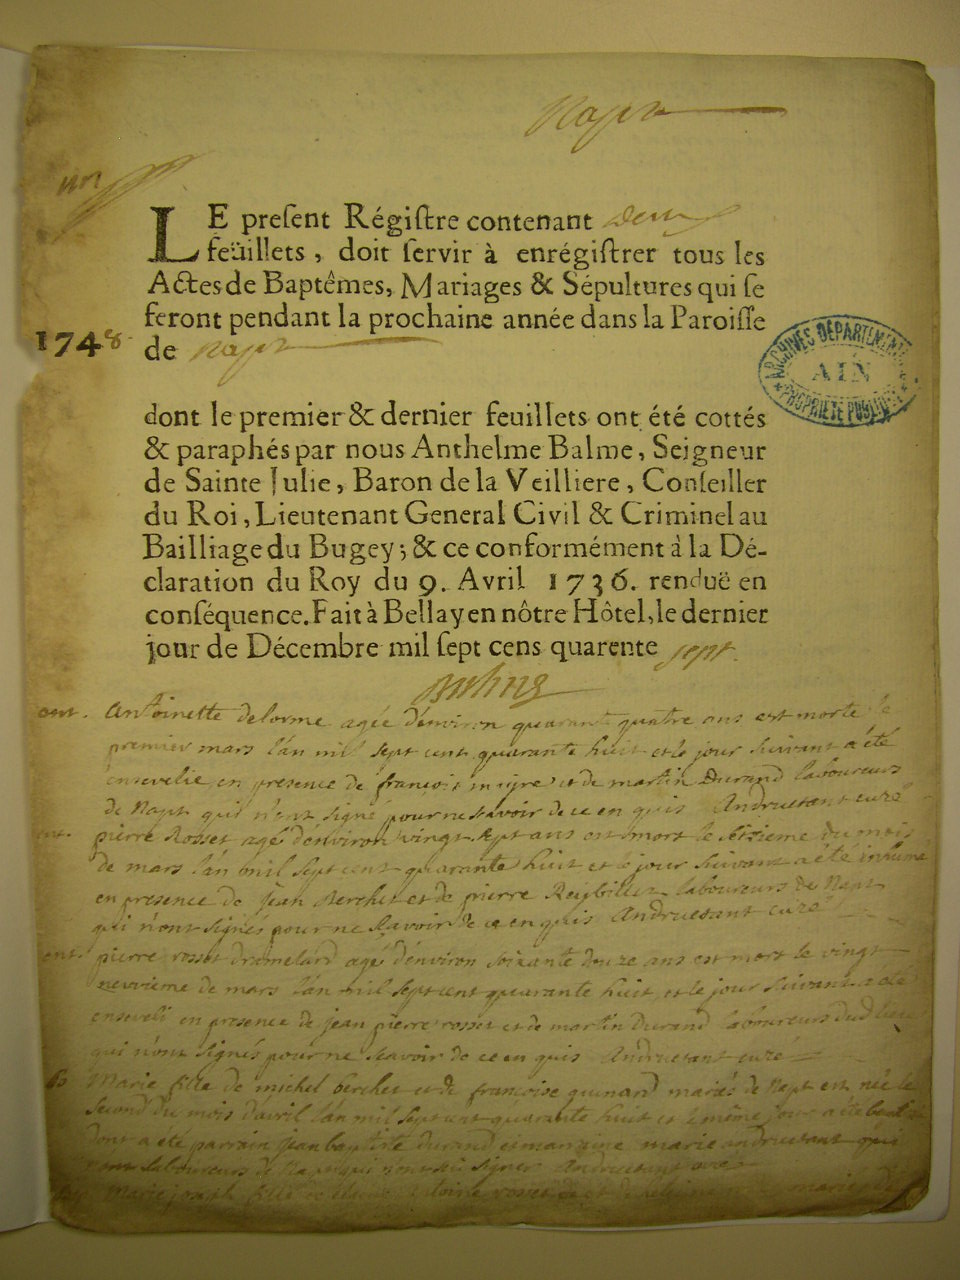 Napt
LE present Régistre contenant deux
feüillets, doit servir à enrégistrer tous les
Actes de Baptêmes, Mariages & Sépultures qui se
feront pendant la prochaine année dans la Paroisse
1748
de Napt
ARCHIVES DEPARTEMENTALES
AIN
PROPRIETE PUBLIQUE
dont le premier & dernier feuillets ont été cottés
& paraphés par nous Anthelme Balme, Seigneur
de Sainte Julie, Baron de la Veilliere, Conseiller
du Roi, Lieutenant General Civil & Criminel au
Bailliage du Bugey; & ce conformément à la Dé-
claration du Roy du 9. Avril 1736. renduë en
conséquence. Fait à Bellay en nôtre Hôtel, le dernier
jour de Décembre mil sept cens quarente sept.
Antoinette delorme agée d'environ quarante quatre ans est morte le
premier mars l'an mil sept cent quarante huit et le jour suivant a été
ensevelie en presence de françois et de martin Durand laboureurs
de Napt qui n'ont signé pour ne scavoir de ce enquis Andruetant curé
pierre Rosset agé d'environ vingt sept ans est mort le du mois
de mars l'an mil sept cent quarante huit et le jour suivant a été inhumé
en presence de jean Berchet et de pierre Reybillier laboureurs de Napt
qui n'ont signés pour ne scavoir de ce enquis Andruetant curé
pierre rosset dramelard agé d'environ soixante douze ans est mort le vingt
neuvieme de mars l'an mil sept cent quarante huit et le jour suivant a été
enseveli en presence de jean pierre rosset et de martin durand laboureurs dud lieu
qui n'ont signés pour ne scavoir de ce enquis Andruetant curé
Marie fille de michel berchet et de francoise guinard mariés de Napt est née le
second du mois d'avril l'an mil sept cent quarante huit et le même jour a été
dont a été parrain jean baptiste durand et marraine marie andruetant qui
laboureurs de Napt qui n'ont signer Andruetant curé
Marie joseph fille